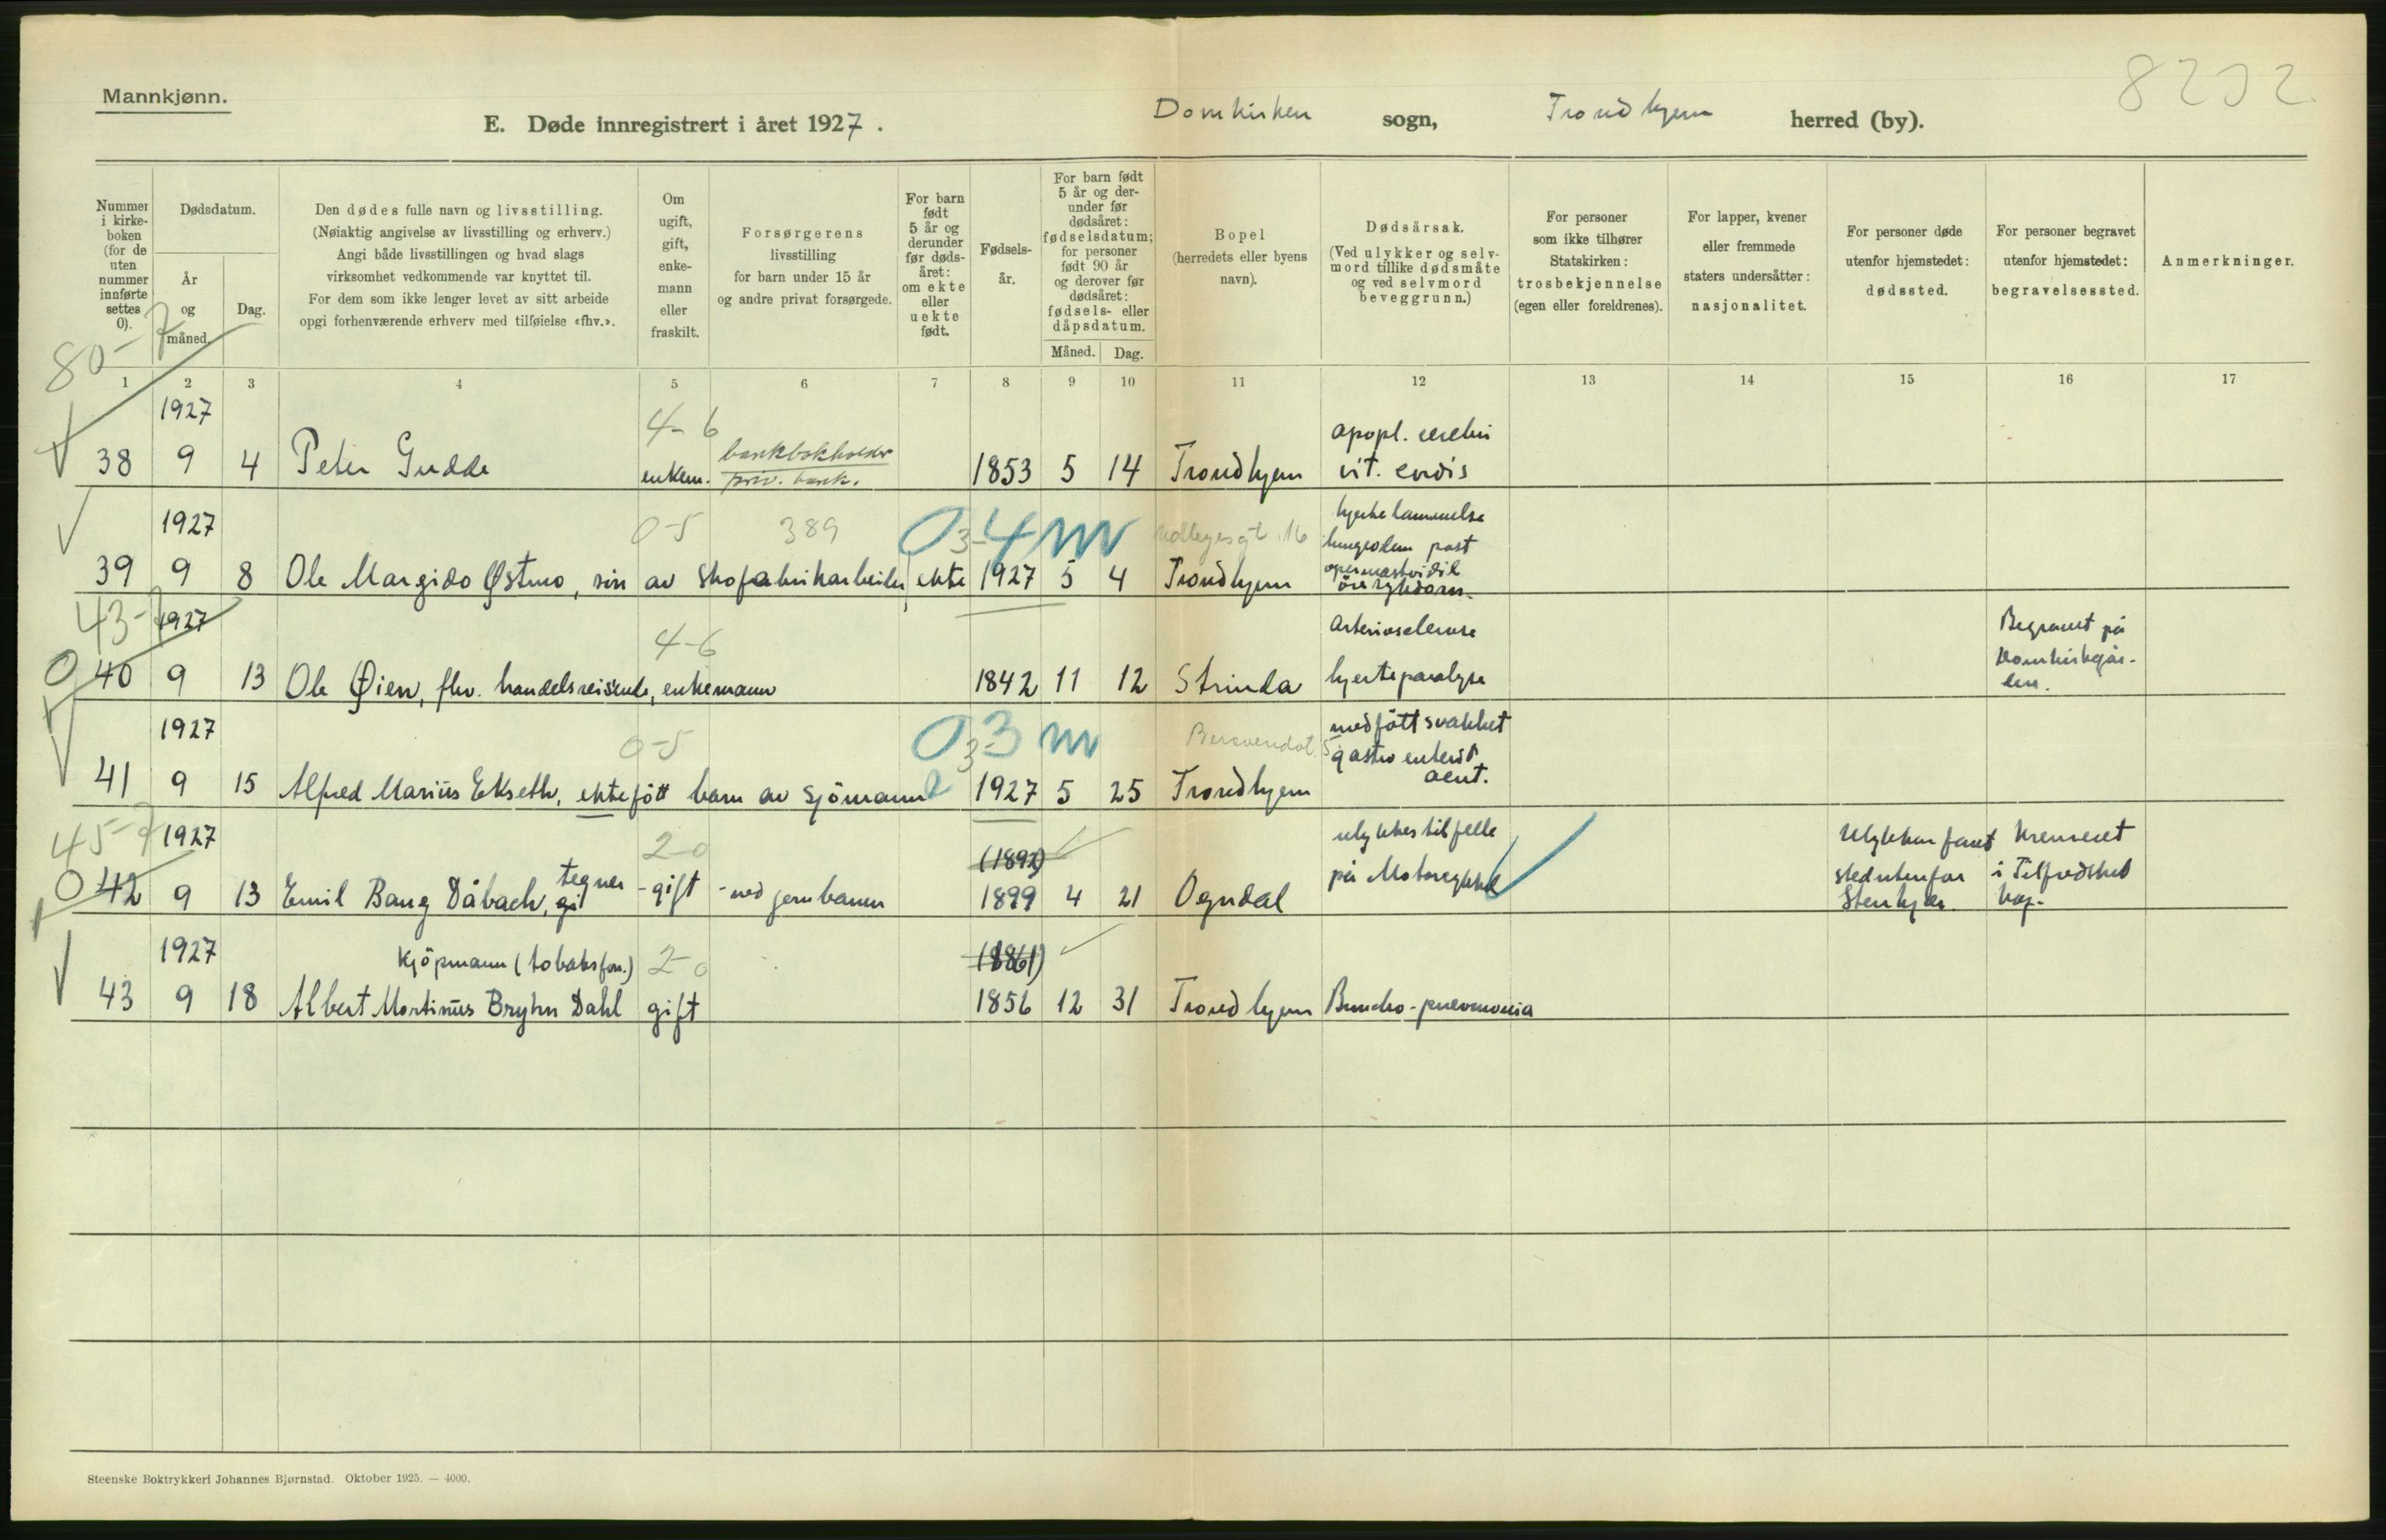 Mannkjønn.
8202
E. Døde innregistrert i året 1927. Domkirken sogn, Trondhjem herred (by).
Nummer i kirkeboken (for de uten nummer innførte settes 0).
Dødsdatum.
År og måned.
Dag.
Den dødes fulle navn og livsstilling.
(Nøiaktig angivelse av livsstilling og erhverv.)
Angi både livsstillingen og hvad slags
virksomhet vedkommende var knyttet til.
For dem som ikke lenger levet av sitt arbeide
opgi forhenværende erhverv med tilføielse «fhv.».
Om ugift, gift, enkemann eller fraskilt.
Forsørgerens
livsstilling
for barn under 15 år
og andre privat forsørgede.
For barn født 5 år og derunder før dødsåret: om ekte eller uekte født.
Fødselsår.
For barn født 5 år og derunder før dødsåret: fødselsdatum; for personer født 90 år og derover før dødsåret: fødsels- eller dåpsdatum.
Måned. Dag.
Bopel
(herredets eller byens
navn).
Dødsårsak.
(Ved ulykker og selvmord tillike dødsmåte og ved selvmord beveggrunn.)
For personer
som ikke tilhører
Statskirken:
trosbekjennelse
(egen eller foreldrenes).
For lapper, kvener
eller fremmede
staters undersåtter:
nasjonalitet.
For personer døde
utenfor hjemstedet:
dødssted.
For personer begravet
utenfor hjemstedet:
begravelsessted.
Anmerkninger.
80-7
1 2 3 4 5 6 7 8 9 10 11 12 13 14 15 16 17
1927 4-6 apopl. cerebri
bankbokholder
38 9 4 Peter Gudde enkem. priv. bank. 1853 5 14 Trondhjem vit. cordis
1927 0-5 389 03-4 m 16 hjertelammelse
lungeødem post
39 9 8 Ole Margido Østmo, sön av skofabrikarbeider ekte 1927 5 4 Trondhjem
öresykdom.
43-7 1927 4-6 Arteriosclerose Begravet på
Domkirkegår-
40 9 13 Ole Øien, fhv. handelsreisende, enkemann 1842 11 12 Strinda hjerteparalyse den.
1927 0-5 03-3 m medfött svakhet
gastroenterit
41 9 15 Alfred Marius Ekseth, ektefött barn av sjömann 1927 5 25 Trondhjem acut.
45-7 1927 2-0 (1892) ulykkestilfelle Ulykken fant Kremeret
tegner på Motorcykkel sted utenfor i Tilfredshet
42 9 13 Emil Bang Dåbach, gi -gift -ved jernbanen 1899 4 21 Ogndal Stenkjer. kap.
1927 Kjöpmann (tobaksforr.) 2-0 (1861)
43 9 18 Albert Martinus Bryhn Dahl gift 1856 12 31 Trondhjem Broncho-pneumonia
Steenske Boktrykkeri Johannes Bjørnstad. Oktober 1925. — 4000.